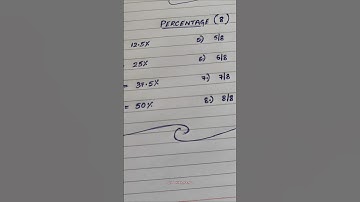 PERCENTAGE (8)
12.5% 5) 5/8
25% 6) 6/8
= 37.5% 7) 7/8
= 50% 8) 8/8